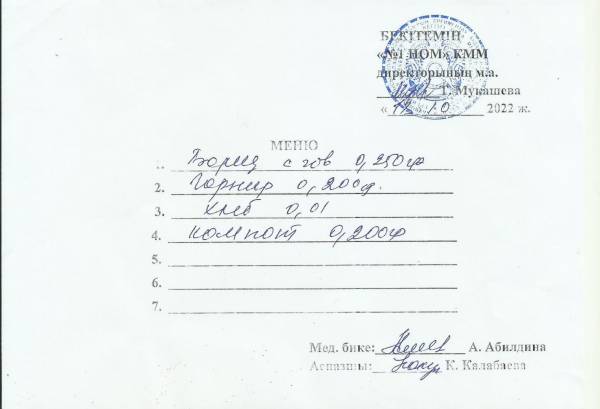 БЕКІТЕМІН
«№1 НОМ» КММ
директорының м.а.
Г. Мукашева
« 10 2022 ж.
МЕНЮ
1. Борщ с гов 0,250гр
2. Горнир 0,200гр.
3. хлеб 0,01
4. компот 0,200гр
5.
6.
7.
Мед. бике: А. Абилдина
Аспазшы: К. Калабаева